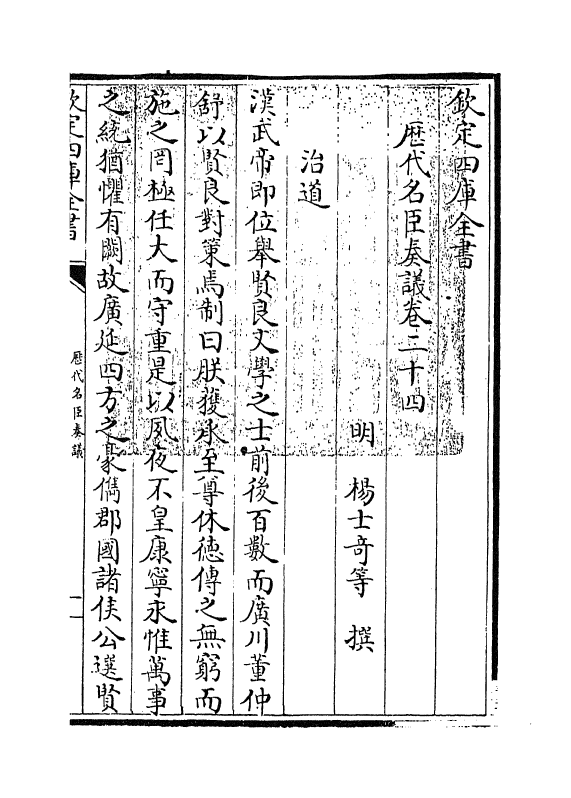 欽定四庫全書
歴代名臣奏議卷二十四
明 楊士奇等 撰
治道
漢武帝即位舉賢良文學之士前後百數而廣川董仲
舒以賢良對策焉制曰朕獲承至尊休德傳之無窮而
施之罔極任大而守重是以夙夜不皇康寧永惟萬事
之統猶懼有闕故廣延四方之豪儁郡國諸侯公選賢
欽定四庫全書
歷代名臣奏議
一